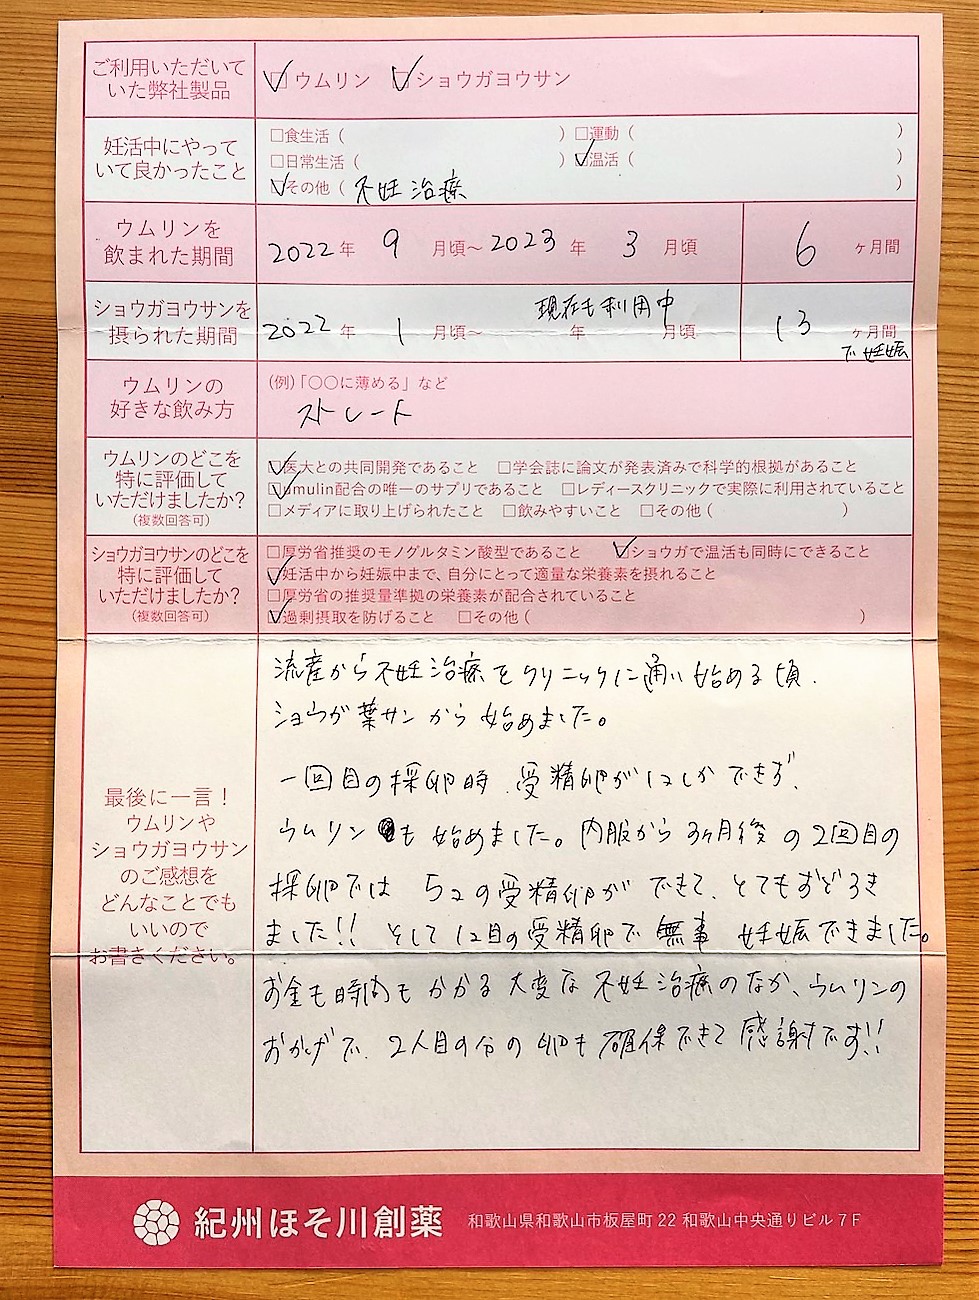 ご利用いただいて
いた弊社製品
☑ウムリン ☑ショウガヨウサン
妊活中にやって
いて良かったこと
□食生活( ) □運動( )
□日常生活( ) ☑温活( )
☑その他( 不妊治療 )
ウムリンを
飲まれた期間
2022年 9 月頃〜2023 年 3 月頃
6 ヶ月間
ショウガヨウサンを
摂られた期間
現在も利用中
2022 年 1 月頃〜 年 月頃
13 ヶ月間
で妊娠
ウムリンの
好きな飲み方
(例)「○○に薄める」など
ストレート
ウムリンのどこを
特に評価して
いただけましたか?
(複数回答可)
☑医大との共同開発であること □学会誌に論文が発表済みで科学的根拠があること
☑umulin配合の唯一のサプリであること □レディースクリニックで実際に利用されていること
□メディアに取り上げられたこと □飲みやすいこと □その他( )
ショウガヨウサンのどこを
特に評価して
いただけましたか?
(複数回答可)
□厚労省推奨のモノグルタミン酸型であること ☑ショウガで温活も同時にできること
☑妊活中から妊娠中まで、自分にとって適量な栄養素を摂れること
□厚労省の推奨量準拠の栄養素が配合されていること
☑過剰摂取を防げること □その他( )
最後に一言!
ウムリンや
ショウガヨウサン
のご感想を
どんなことでも
いいので
お書きください。
流産から不妊治療をクリニックに通い始める頃、
ショウガ葉サンから始めました。
一回目の採卵時、受精卵が1コしかできず、
ウムリンも始めました。内服から3ヶ月後の2回目の
採卵では5コの受精卵ができて、とてもおどろき
ました!! そして1コ目の受精卵で無事 妊娠できました。
お金も時間もかかる大変な不妊治療のなか、ウムリンの
おかげで、2人目の分の卵も確保できて感謝です!!
紀州ほそ川創薬 和歌山県和歌山市板屋町22 和歌山中央通りビル7F